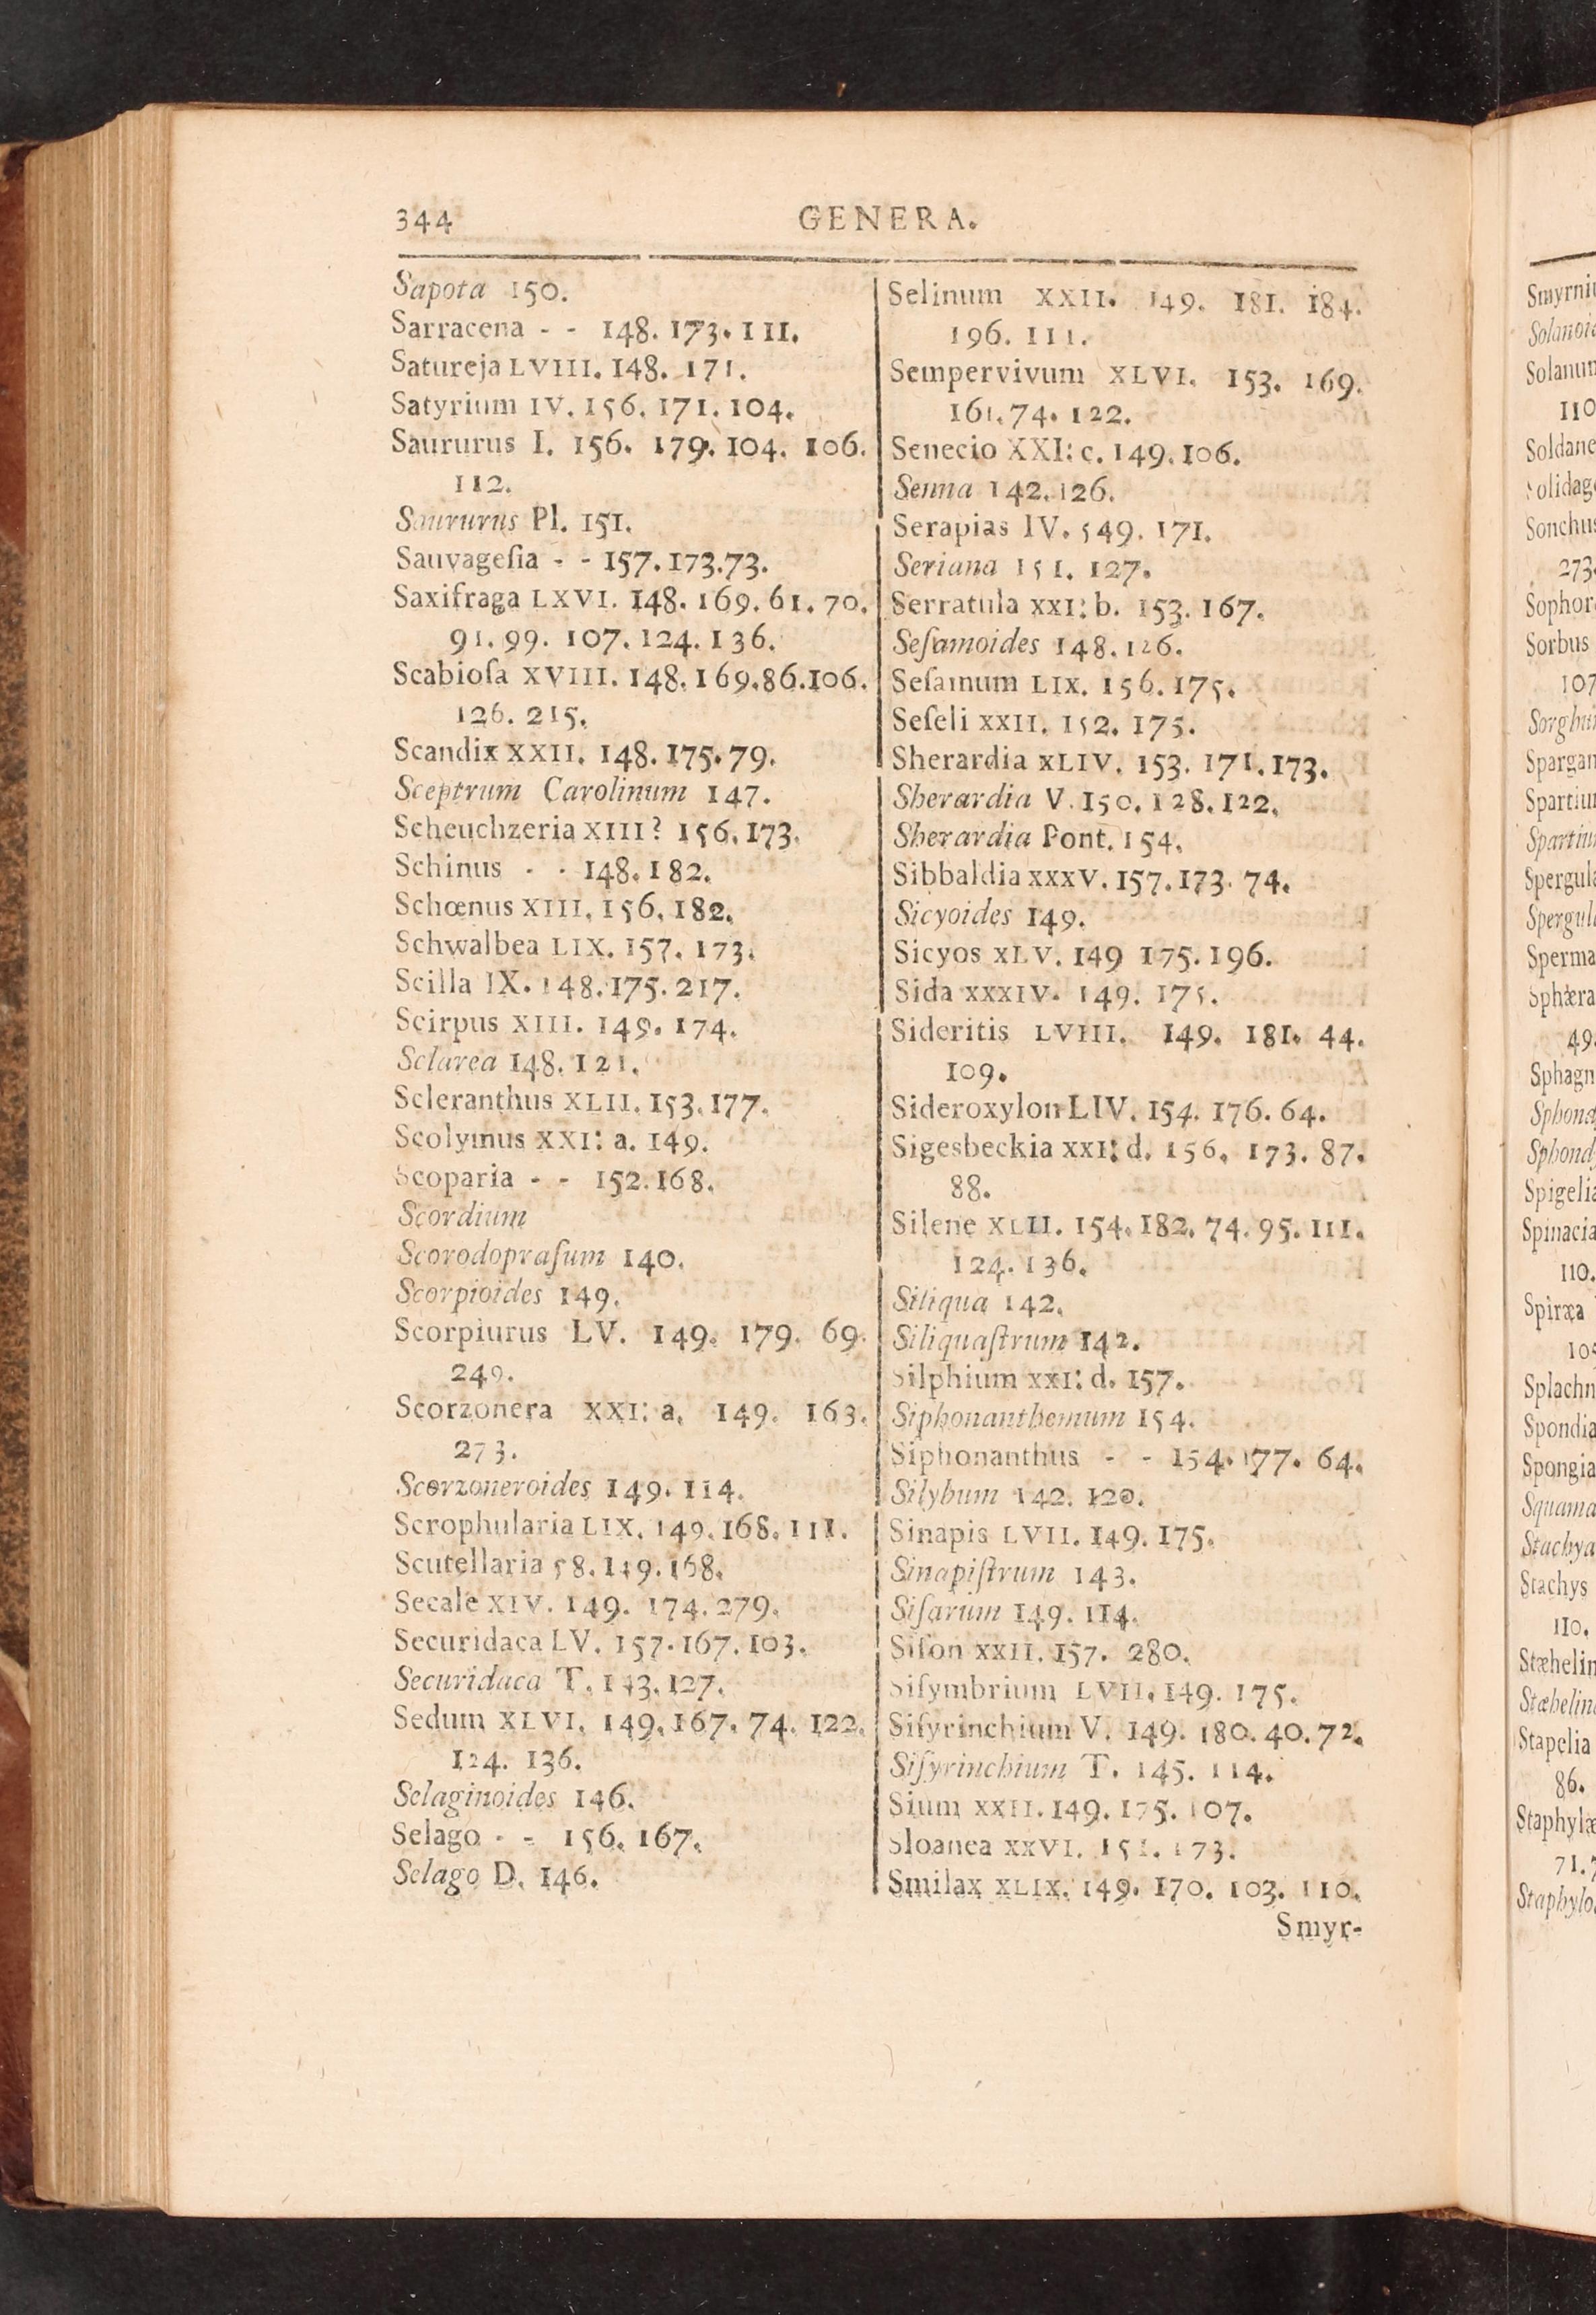 344 GENERA.
Sapota 150.
Sarracena - - 148. 173. 111.
Satureja LVIII. 148. 171.
Satyrium IV. 156. 171. 104.
Saururus I. 156. 179. 104. 106.
112.
Saururus Pl. 151.
Sauvagesia - - 157. 173. 73.
Saxifraga LXVI. 148. 169. 61. 70.
91. 99. 107. 124. 136.
Scabiosa XVIII. 148. 169. 86. 106.
126. 215.
Scandix XXII. 148. 175. 79.
Sceptrum Carolinum 147.
Scheuchzeria XIII? 156. 173.
Schinus - - 148. 182.
Schœnus XIII. 156. 182.
Schwalbea LIX. 157. 173.
Scilla IX. 148. 175. 217.
Scirpus XIII. 149. 174.
Sclarea 148. 121.
Scleranthus XLII. 153. 177.
Scolymus XXI: a. 149.
Scoparia - - 152. 168.
Scordium
Scorodoprasum 140.
Scorpioides 149.
Scorpiurus LV. 149. 179. 69.
249.
Scorzonera XXI: a. 149. 163.
273.
Scorzoneroides 149. 114.
Scrophularia LIX. 149. 168. 111.
Scutellaria 58. 149. 168.
Secale XIV. 149. 174. 279.
Securidaca LV. 157. 167. 103.
Securidaca T. 143. 127.
Sedum XLVI. 149. 167. 74. 122.
124. 136.
Selaginoides 146.
Selago - - 156. 167.
Selago D. 146.
Selinum XXII. 149. 181. 184.
196. 111.
Sempervivum XLVI. 153. 169.
161. 74. 122.
Senecio XXI: c. 149. 106.
Senna 142. 126.
Serapias IV. 549. 171.
Seriana 151. 127.
Serratula XXI: b. 153. 167.
Sesamoides 148. 126.
Sesamum LIX. 156. 175.
Seseli XXII. 152. 175.
Sherardia XLIV. 153. 171. 173.
Sherardia V. 150. 128. 122.
Sherardia Pont. 154.
Sibbaldia XXXV. 157. 173. 74.
Sicyoides 149.
Sicyos XLV. 149 175. 196.
Sida XXXIV. 149. 175.
Sideritis LVIII. 149. 181. 44.
109.
Sideroxylon LIV. 154. 176. 64.
Sigesbeckia XXI: d. 156. 173. 87.
88.
Silene XLII. 154. 182. 74. 95. 111.
124. 136.
Siliqua 142.
Siliquastrum 142.
Silphium XXI: d. 157.
Siphonanthemum 154.
Siphonanthus - - 154. 177. 64.
Silybum 142. 120.
Sinapis LVII. 149. 175.
Sinapistrum 143.
Sisarum 149. 114.
Sison XXII. 157. 280.
Sisymbrium LVII. 149. 175.
Sisyrinchium V. 149. 180. 40. 72.
Sisyrinchium T. 145. 114.
Sium XXII. 149. 175. 107.
Sloanea XXVI. 151. 173.
Smilax XLIX. 149. 170. 103. 110.
Smyr-
110
Soldane
Sonchus
273.
Sorbus
107
49.
110.
Spiræa
Stachys
110.
Stapelia
86.